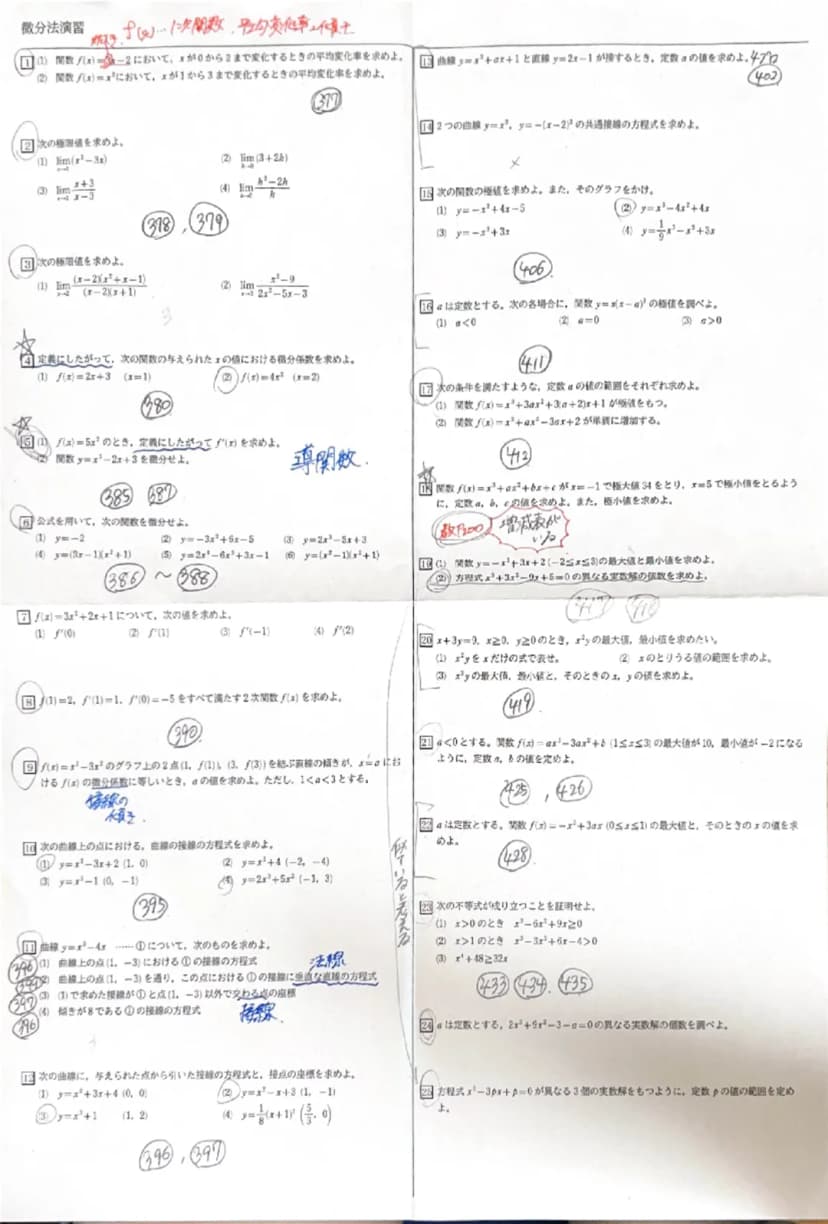 微分法演習
f(x)… 1次関数、平均変化率=傾き
1 (1) 関数 f(x)=3x−2において，xが0から3まで変化するときの平均変化率を求めよ。
(2) 関数 f(x)=x²において，xが1から3まで変化するときの平均変化率を求めよ。
377
2 次の極限値を求めよ。
(1) lim(x²−3x) (2) lim(3+2h)
(3) lim (x+3)/(x−3) (4) lim (h²−2h)/h
378 , 379
3 次の極限値を求めよ。
(1) lim (x−2)(x²+x−1)/(x−2)(x+1) (2) lim (x²−9)/(2x²−5x−3)
4 定義にしたがって，次の関数の与えられた x の値における微分係数を求めよ。
(1) f(x)=2x+3 (x=1) (2) f(x)=4x² (x=2)
380
5 (1) f(x)=5x² のとき，定義にしたがって f'(x) を求めよ。
(2) 関数 y=x²−2x+3 を微分せよ。
導関数.
385 387
6 公式を用いて，次の関数を微分せよ。
(1) y=−2 (2) y=−3x²+6x−5 (3) y=2x³−5x+3
(4) y=(3x−1)(x²+1) (5) y=2x³−6x²+3x−1 (6) y=(x²−1)(x²+1)
386 ～ 388
7 f(x)=3x²+2x+1 について，次の値を求めよ。
(1) f'(0) (2) f'(1) (3) f'(−1) (4) f'(2)
8 f(1)=2，f'(1)=1，f'(0)=−5 をすべて満たす2次関数 f(x) を求めよ。
390
9 f(x)=x³−3x² のグラフ上の2点 (1, f(1)), (3, f(3)) を結ぶ直線の傾きが，x=a にお
ける f(x) の微分係数に等しいとき，a の値を求めよ。ただし，1<a<3 とする。
接線の
傾き.
10 次の曲線上の点における，曲線の接線の方程式を求めよ。
(1) y=x²−3x+2 (1, 0) (2) y=x³+4 (−2, −4)
(3) y=x³−1 (0, −1) (4) y=2x³+5x² (−1, 3)
395
似ていると考える
11 曲線 y=x³−4x ……① について，次のものを求めよ。
396 (1) 曲線上の点(1, −3)における①の接線の方程式 法線
(2) 曲線上の点(1, −3)を通り，この点における①の接線に垂直な直線の方程式
397 (3) (1)で求めた接線が①と点(1, −3)以外で交わる点の座標
396 (4) 傾きが8である①の接線の方程式 接線.
12 次の曲線に，与えられた点から引いた接線の方程式と，接点の座標を求めよ。
(1) y=x²+3x+4 (0, 0) (2) y=x²−x+3 (1, −1)
(3) y=x³+1 (1, 2) (4) y=1/8(x+1)³ (5/3, 0)
396 , 397
13 曲線 y=x³+ax+1 と直線 y=2x−1 が接するとき，定数 a の値を求めよ。
402
14 2つの曲線 y=x²，y=−(x−2)² の共通接線の方程式を求めよ。
×
15 次の関数の極値を求めよ。また，そのグラフをかけ。
(1) y=−x²+4x−5 (2) y=x³−4x²+4x
(3) y=−x³+3x (4) y=1/9x³−x²+3x
406
16 a は定数とする。次の各場合に，関数 y=x(x−a)² の極値を調べよ。
(1) a<0 (2) a=0 (3) a>0
411
17 次の条件を満たすような，定数 a の値の範囲をそれぞれ求めよ。
(1) 関数 f(x)=x³+3ax²+3(a+2)x+1 が極値をもつ。
(2) 関数 f(x)=x³+ax²−3ax+2 が単調に増加する。
412
18 関数 f(x)=x³+ax²+bx+c が x=−1 で極大値 34 をとり，x=5 で極小値をとるよう
に，定数 a，b，c の値を求めよ。また，極小値を求めよ。
増減表が
いる
19 (1) 関数 y=−x³+3x+2 (−2≦x≦3) の最大値と最小値を求めよ。
(2) 方程式 x³+3x²−9x+5=0 の異なる実数解の個数を求めよ。
20 x+3y=9，x≧0，y≧0 のとき，x²y の最大値，最小値を求めたい。
(1) x²y を x だけの式で表せ。 (2) x のとりうる値の範囲を求めよ。
(3) x²y の最大値，最小値と，そのときの x，y の値を求めよ。
419
21 a<0 とする。関数 f(x)=ax³−3ax²+b (1≦x≦3) の最大値が10，最小値が −2 になる
ように，定数 a，b の値を定めよ。
425 , 426
22 a は定数とする。関数 f(x)=−x³+3ax (0≦x≦1) の最大値と，そのときの x の値を求
めよ。
428
23 次の不等式が成り立つことを証明せよ。
(1) x>0 のとき x³−6x²+9x≧0
(2) x>1 のとき x³−3x²+6x−4>0
(3) x⁴+48≧32x
433 434 435
24 a は定数とする，2x³+9x²−3−a=0 の異なる実数解の個数を調べよ。
25 方程式 x³−3px+p=0 が異なる3個の実数解をもつように，定数 p の値の範囲を定め
よ。